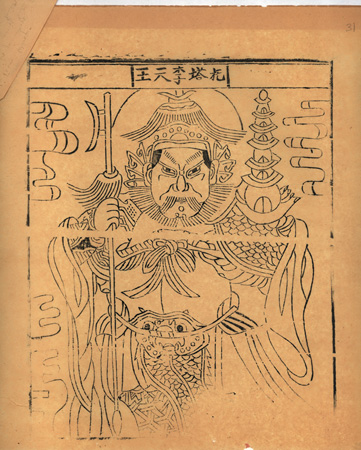 托塔李天王
31